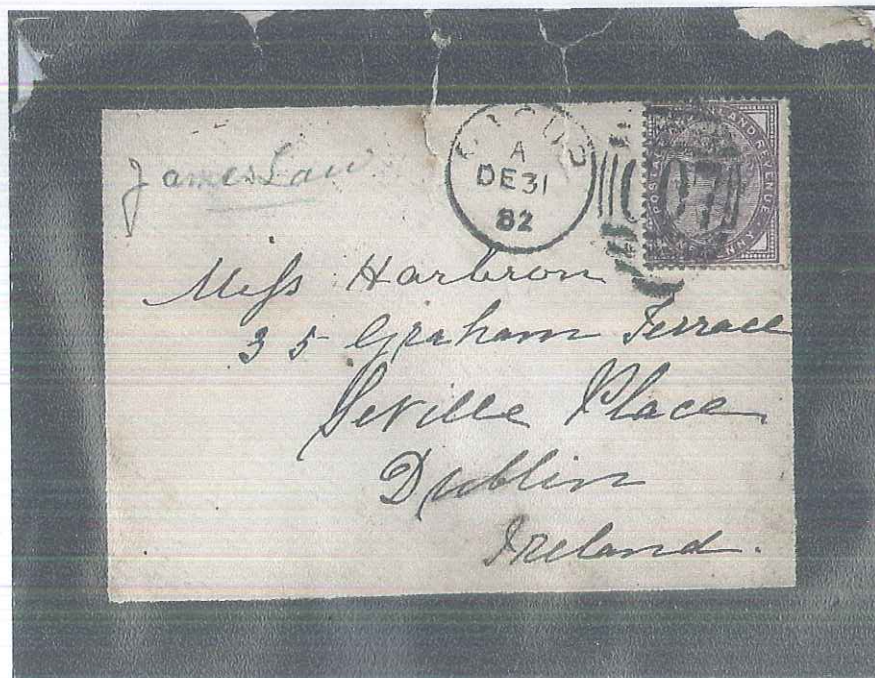 James Law
A
DE 31
82
007
POSTAGE AND REVENUE
Miss Harbron
35 Graham Terrace
Seville Place
Dublin
Ireland.